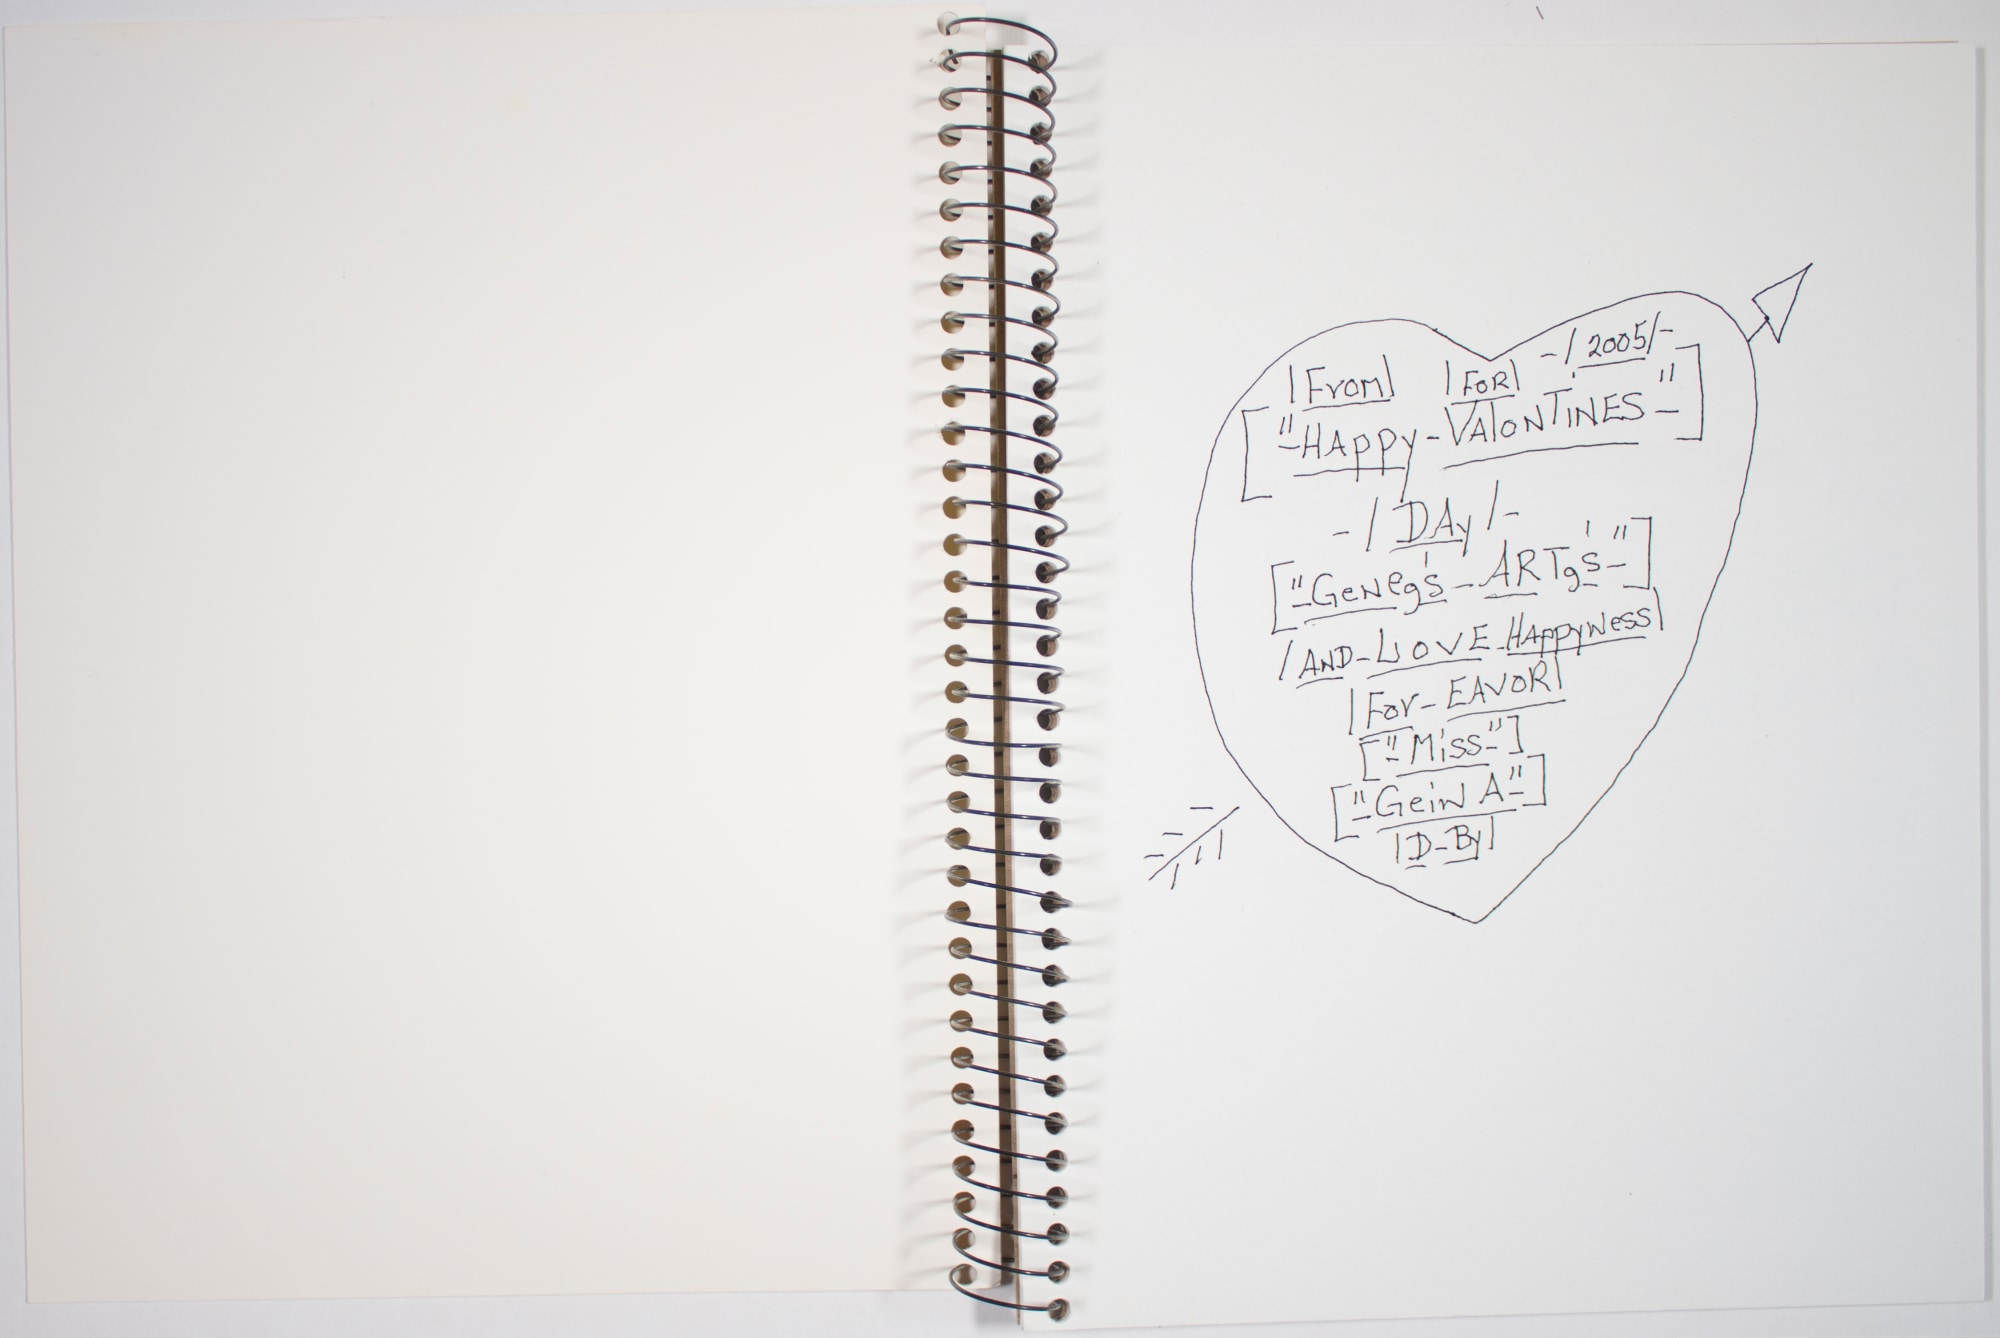 |From| |FoR| -/2005/-
["-HAppy-VAlonTiNES-"]
-/DAy/-
["-GeNeg's-ARTgs'-"]
/AND-LiOVE-HAppyNess|
|For-EAVoR|
["-Miss-"]
["-GeiN A-"]
|D-By|